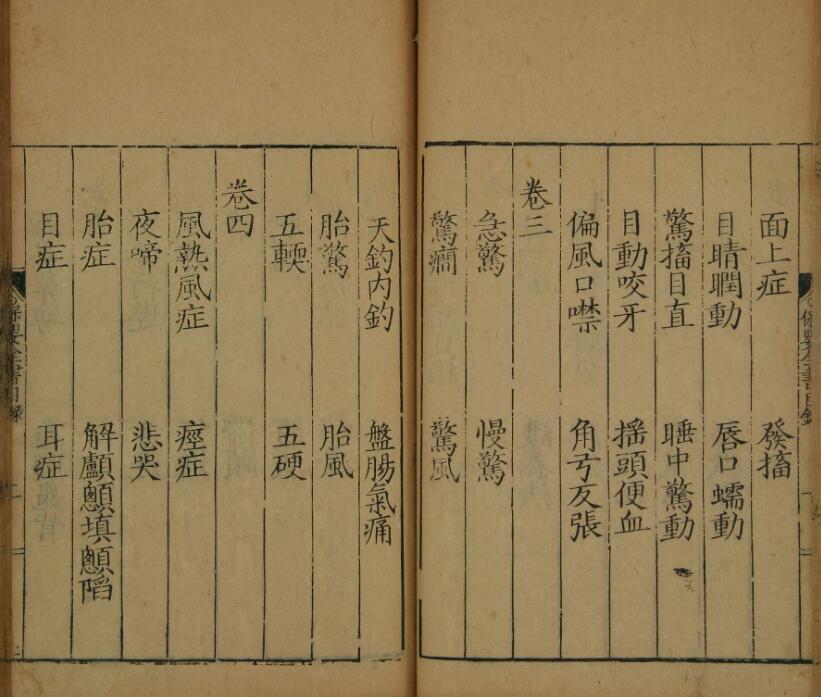 面上症 發搐
目睛瞤動 唇口蠕動
驚搐目直 睡中驚動
目動咬牙 揺頭便血
偏風口噤 角弓反張
卷三
急驚 慢驚
驚癇 驚風
天釣内釣 盤腸氣痛
胎驚 胎風
五軟 五硬
卷四
風熱風症 痙症
夜啼 悲哭
胎症 解顱顖填顖陷
目症 耳症
保嬰全書目錄